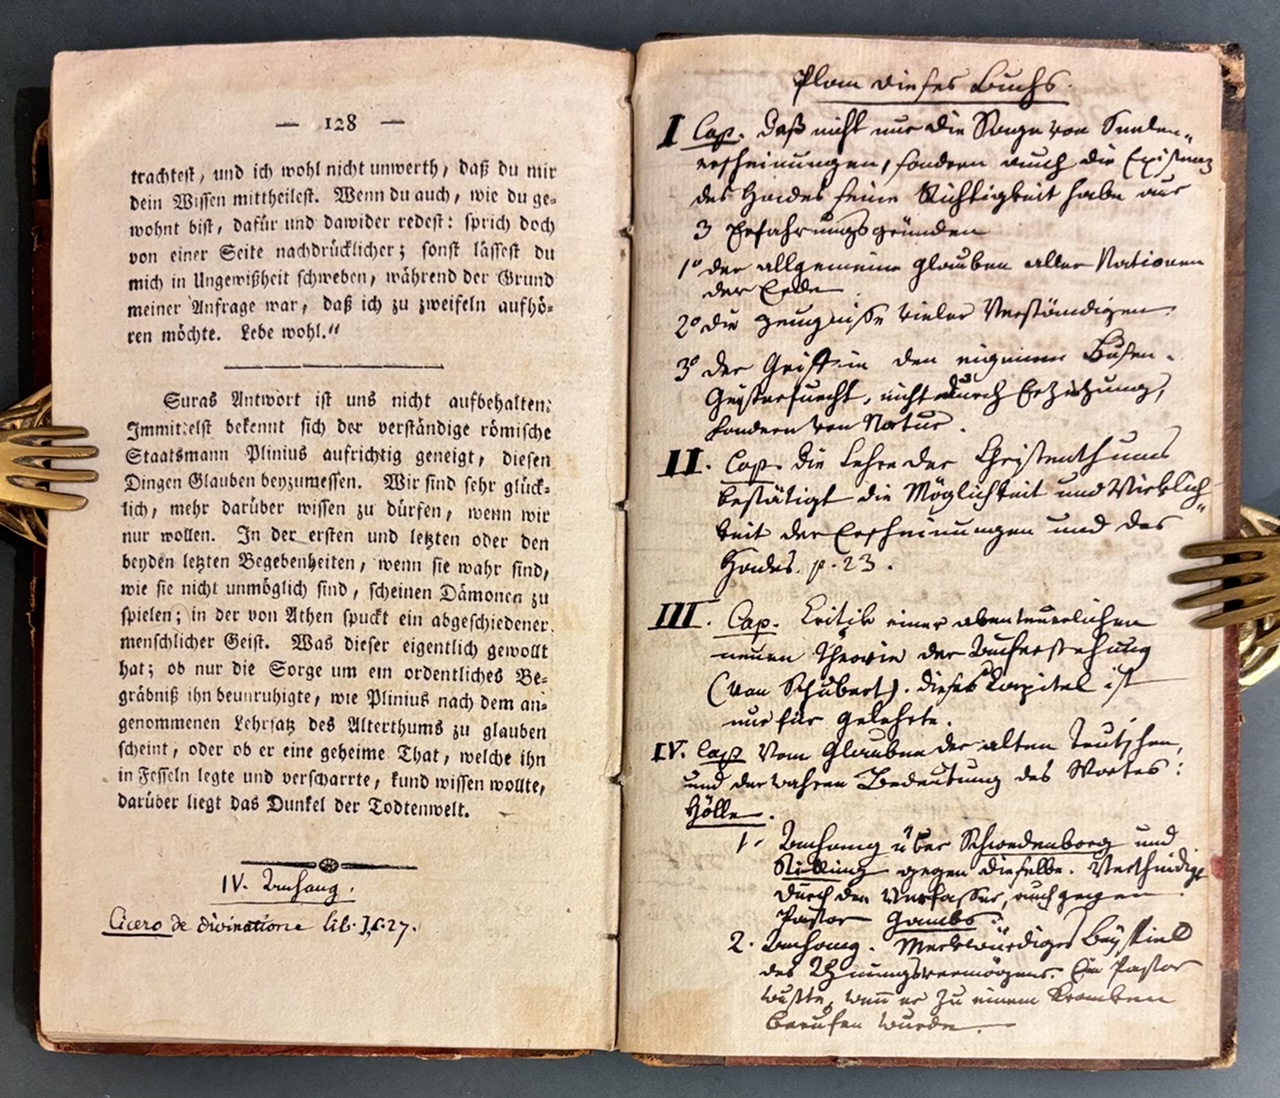 — 128 —
trachtest, und ich wohl nicht unwerth, daß du mir
dein Wissen mittheilest. Wenn du auch, wie du ge-
wohnt bist, dafür und dawider redest: sprich doch
von einer Seite nachdrücklicher; sonst lässest du
mich in Ungewißheit schweben, während der Grund
meiner Anfrage war, daß ich zu zweifeln aufhö-
ren möchte. Lebe wohl."
Suras Antwort ist uns nicht aufbehalten:
Immittelst bekennt sich der verständige römische
Staatsmann Plinius aufrichtig geneigt, diesen
Dingen Glauben beyzumessen. Wir sind sehr glück-
lich, mehr darüber wissen zu dürfen, wenn wir
nur wollen. In der ersten und letzten oder den
beyden letzten Begebenheiten, wenn sie wahr sind,
wie sie nicht unmöglich sind, scheinen Dämonen zu
spielen; in der von Athen spuckt ein abgeschiedener
menschlicher Geist. Was dieser eigentlich gewollt
hat; ob nur die Sorge um ein ordentliches Be-
gräbniß ihn beunruhigte, wie Plinius nach dem an-
genommenen Lehrsatz des Alterthums zu glauben
scheint, oder ob er eine geheime That, welche ihn
in Fesseln legte und verscharrte, kund wissen wollte,
darüber liegt das Dunkel der Todtenwelt.
IV. Anhang.
Cicero de divinatione lib. I, c. 27.
Plan dieses Buchs.
I Cap. Daß nicht nur die Sage von Seelen-
erscheinungen, sondern auch die Existenz
des Hades seine Richtigkeit habe aus
3 Erfahrungsgründen
1° der allgemeine Glauben aller Nationen
der Erde.
2° die Zeugniße vieler Verständigen
3° der Geist in den eigenen Busen.
Geisterfurcht, nicht durch Erziehung,
sondern von Natur.
II. Cap. die Lehre des Christenthums
bestätigt die Möglichkeit und Wirklich-
keit der Erscheinungen und des
Hades. p. 23.
III. Cap. Kritik einer abenteuerlichen
neuen Theorie der Auferstehung
(von Schubert). dieses Capitel ist
nur für Gelehrte.
IV. Cap Vom Glauben der alten Teutschen,
und der wahren Bedeutung des Wortes:
Hölle.
1. Anhang über Schwedenborg und
Stilling gegen dieselbe. Vertheidigt
durch den Verfasser, auch gegen
Pastor Gambs.
2. Anhang. Merkwürdiges Beyspiel
des Ahnungsvermögens. Ein Pastor
wußte, wann er zu einem Kranken
berufen wurde.